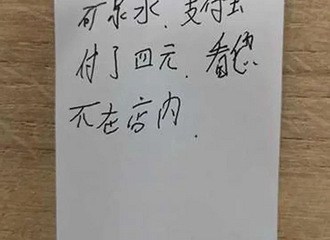 矿泉水、支付宝
付了四元、看您
不在店内.